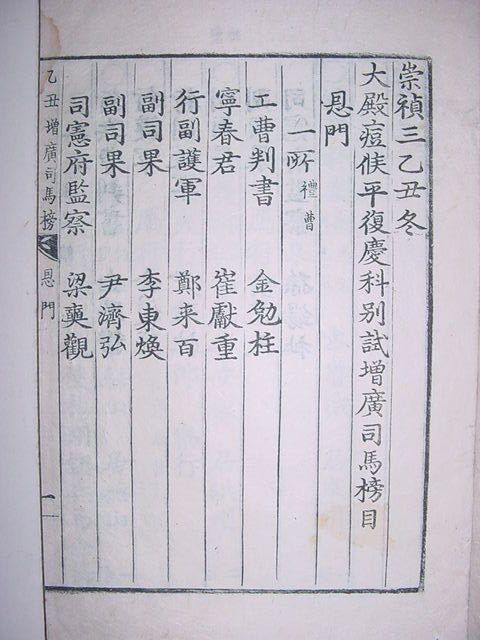 崇禎三乙丑冬
大殿痘候平復慶科別試增廣司馬榜目
恩門
一所 禮曹
工曹判書 金勉柱
寧春君 崔獻重
行副護軍 鄭来百
副司果 李東煥
副司果 尹濟弘
司憲府監察 梁奭觀
乙丑增廣司馬榜 恩門 一